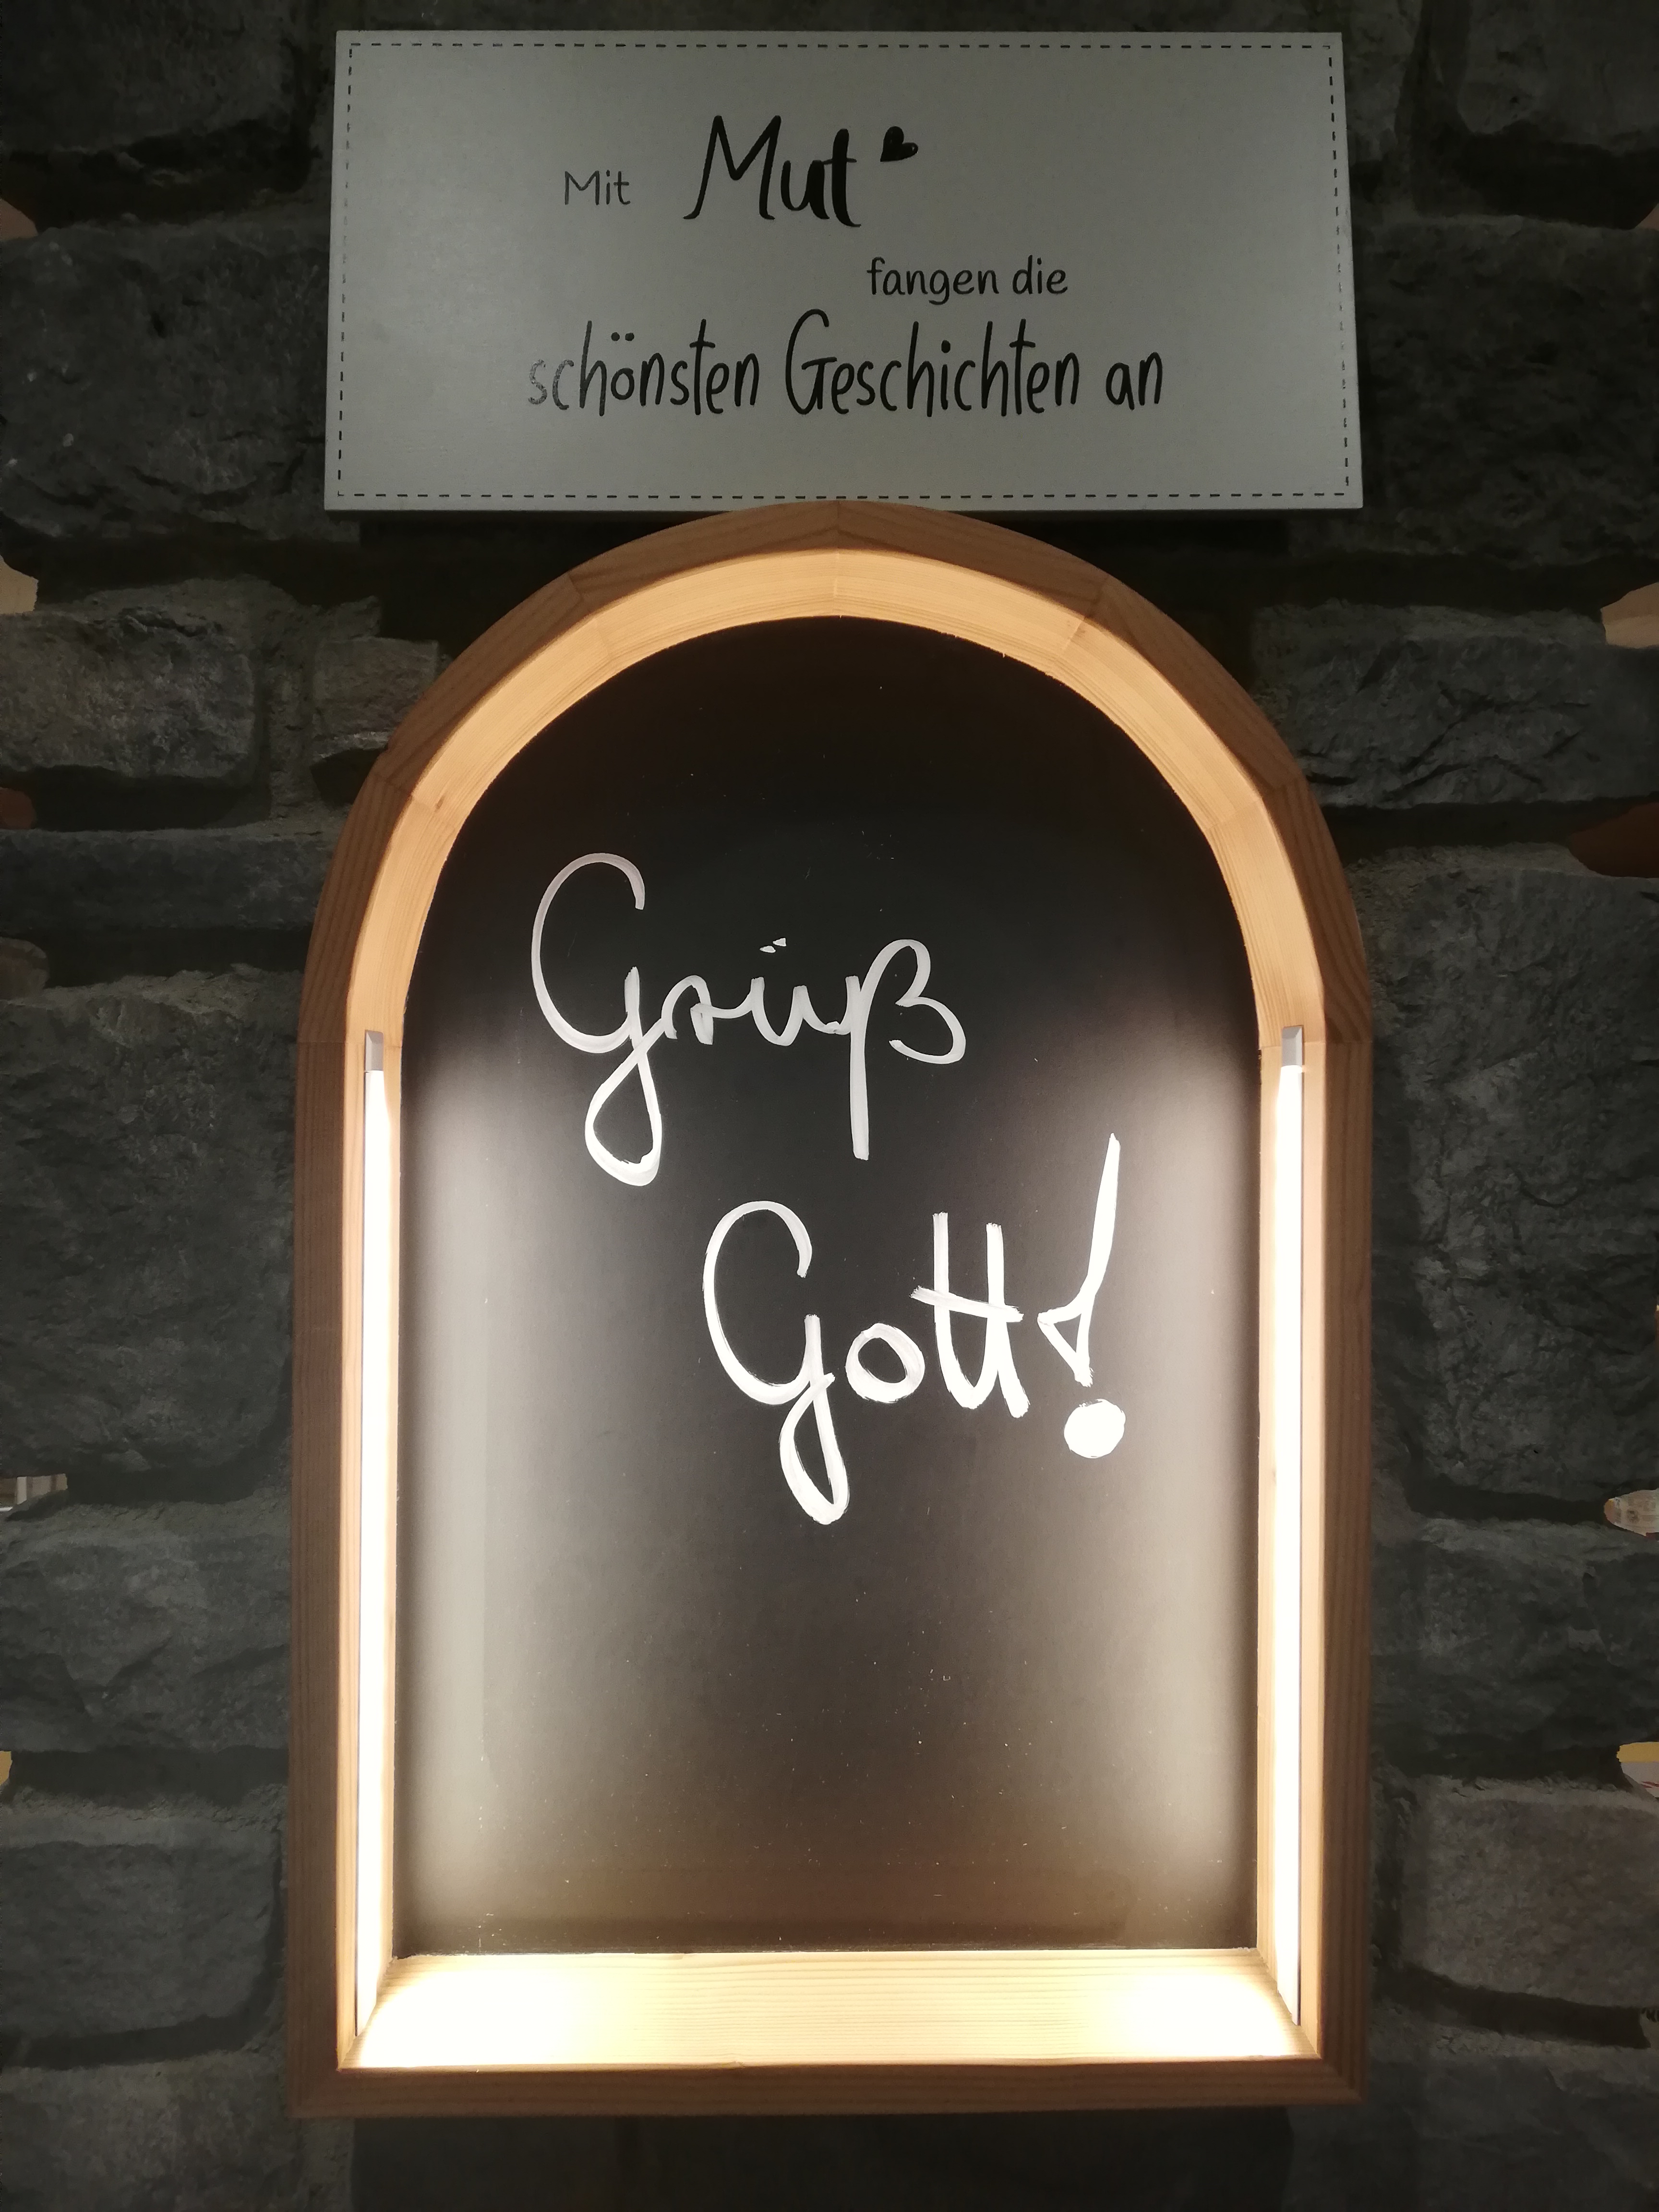 Mit Mut
fangen die
schönsten Geschichten an
Grüß
Gott!